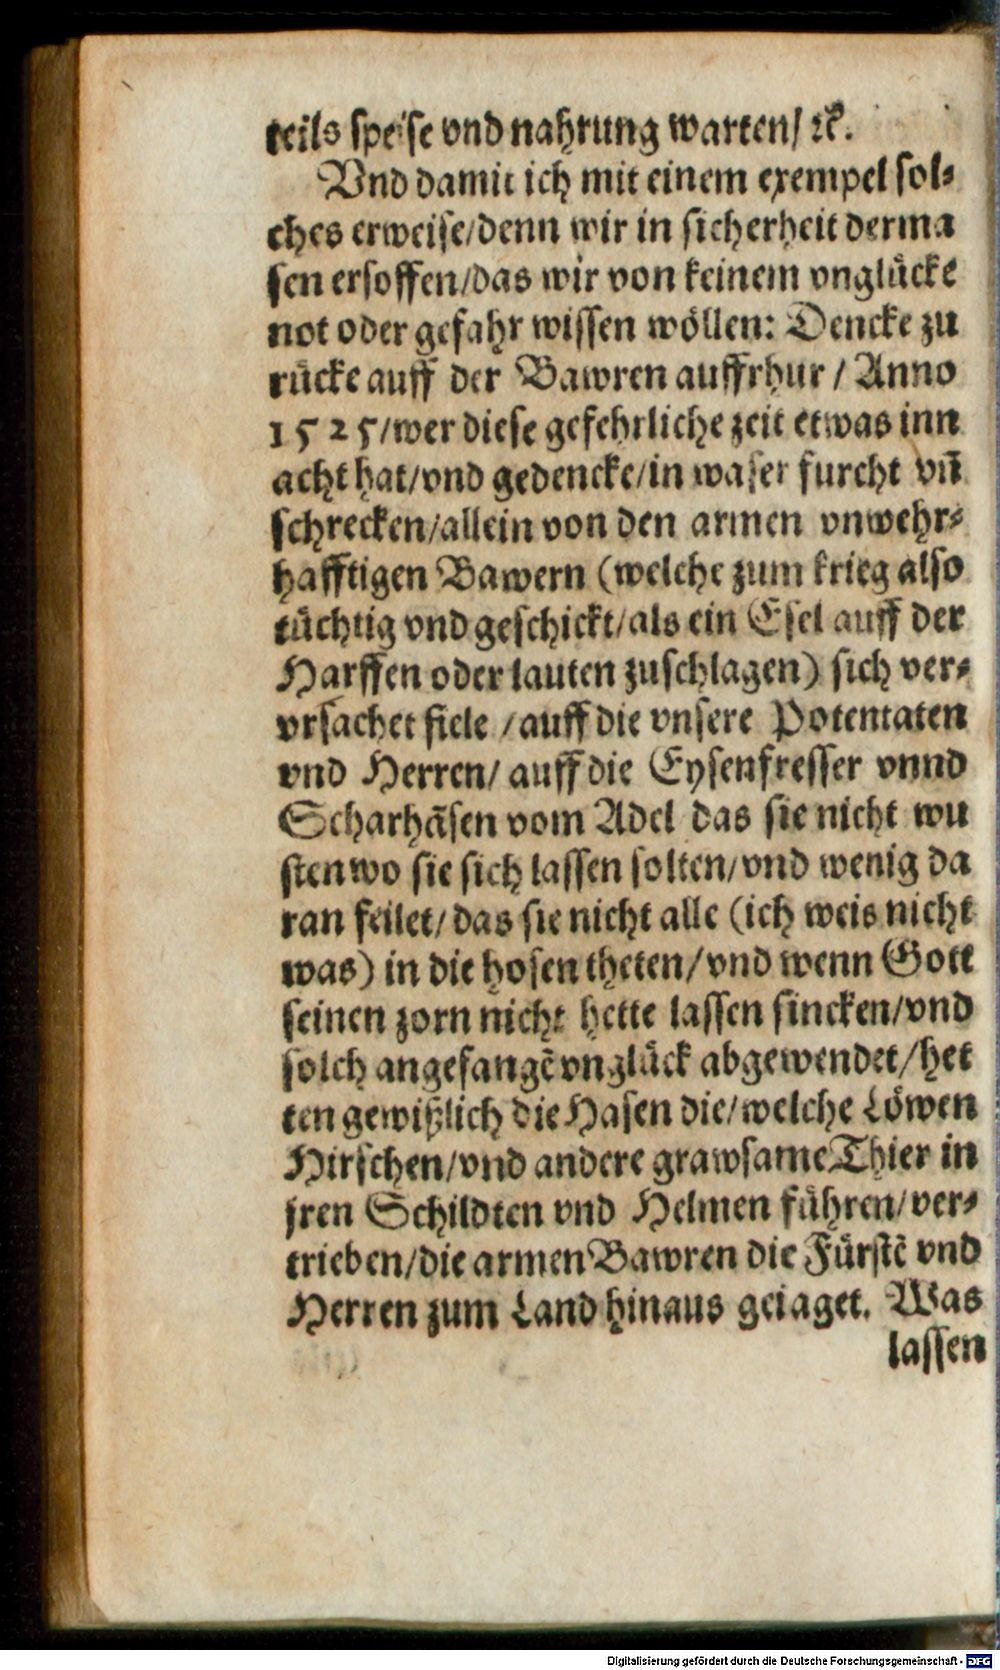 teils speise vnd nahrung warten/ ꝛc̃.
Vnd damit ich mit einem exempel sol⸗
ches erweise/denn wir in sicherheit derma
sen ersoffen/das wir von keinem vnglücke
not oder gefahr wissen wöllen: Dencke zu
rücke auff der Bawren auffrhur / Anno
1525/wer diese gefehrliche zeit etwas inn
acht hat/vnd gedencke/in waser furcht vñ
schrecken/allein von den armen vnwehr⸗
hafftigen Bawern (welche zum krieg also
tüchtig vnd geschickt/als ein Esel auff der
Harffen oder lauten zuschlagen) sich ver⸗
vrsachet fiele /auff die vnsere Potentaten
vnd Herren/ auff die Eysenfresser vnnd
Scharhãsen vom Adel das sie nicht wu
sten wo sie sich lassen solten/vnd wenig da
ran feilet/das sie nicht alle (ich weis nicht
was) in die hosen theten/vnd wenn Gott
seinen zorn nicht hette lassen sincken/vnd
solch angefangẽ vnglück abgewendet/het
ten gewißlich die Hasen die/welche Löwen
Hirschen/vnd andere grawsame Thier in
jren Schildten vnd Helmen führen/ver⸗
trieben/die armen Bawren die Fürstẽ vnd
Herren zum Land hinaus geiaget. Was
lassen
Digitalisierung gefördert durch die Deutsche Forschungsgemeinschaft - DFG